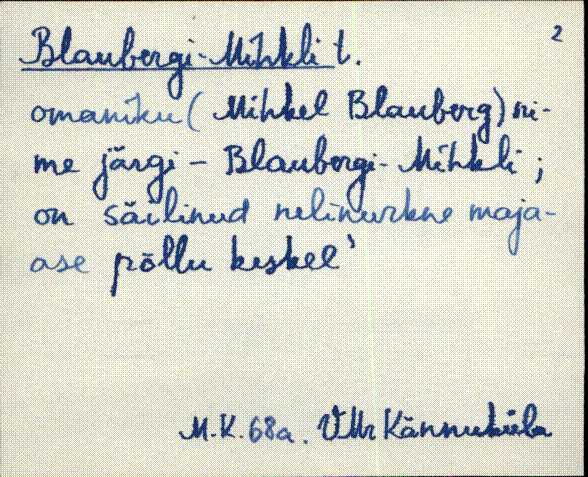 2
Blaubergi-Mihkli t.
omaniku (Mihkel Blauberg) ni-
me järgi – Blaubergi-Mihkli ;
on säilinud nelinurkne maja-
ase põllu keskel'
M.K. 68a. VMr Kännuküla